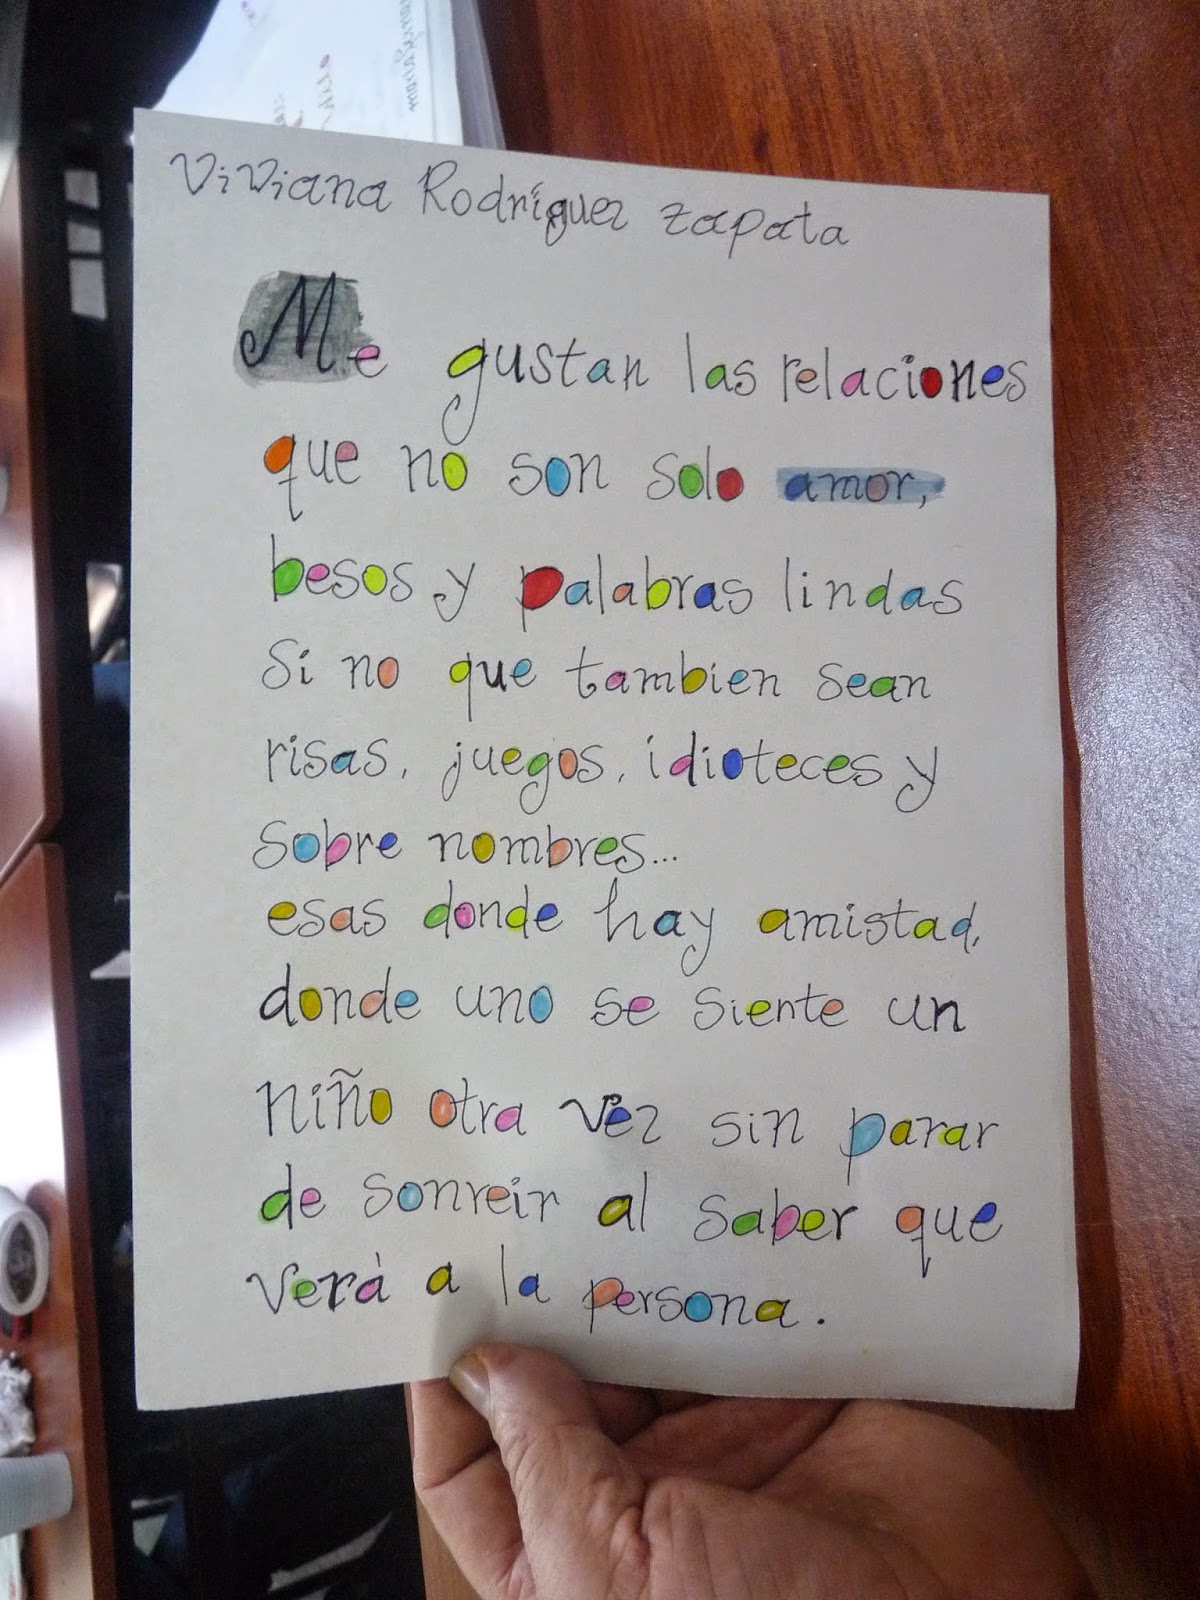 Viviana Rodríguez Zapata
Me gustan las relaciones
que no son solo amor,
besos y palabras lindas
Si no que tambien sean
risas, juegos, idioteces y
sobre nombres...
esas donde hay amistad,
donde uno se siente un
niño otra vez sin parar
de sonreir al saber que
verà a la persona.